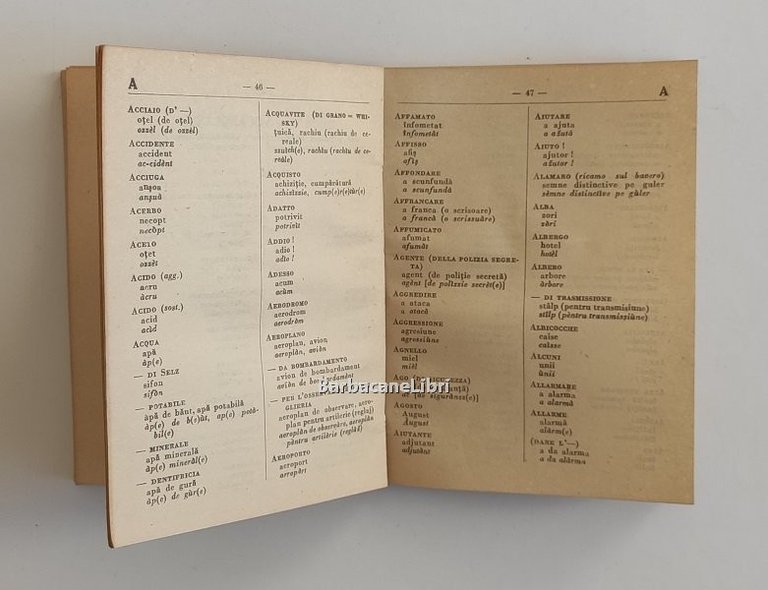 A
— 46 —
ACCIAIO (D' —)
oţel (de oţel)
ozzèl (de ozzèl)
ACCIDENTE
accident
ac-cidènt
ACCIUGA
anşoa
anşuà
ACERBO
necopt
necòpt
ACELO
oţet
ozzèt
ACIDO (agg.)
acru
àcru
ACIDO (sost.)
acid
àcid
ACQUA
apă
àp(e)
— DI SELZ
sifon
sifòn
— POTABILE
apă de băut, apă potabilă
àp(e) de b(e)ùt, ap(e) potà-
bil(e)
— MINERALE
apă minerală
àp(e) mineràl(e)
— DENTIFRICIA
apă de gură
àp(e) de gùr(e)
ACQUAVITE (DI GRANO = WHI-
SKY)
ţuică, rachiu (rachiu de ce-
reale)
ACQUISTO
achiziţie, cumpărătură
ADATTO
potrivit
potrivìt
ADDIO !
adio !
adìo !
ADESSO
acum
acùm
AERODROMO
aerodrom
aerodròm
AEROPLANO
aeroplan, avion
aeroplàn, aviòn
— DA BOMBARDAMENTO
avion de bombardament
aviòn de bombardamènt
— PER L'OSSE
GLIERIA
aeroplan de observare, aero-
plan pentru artilerie (reglaj)
AEROPORTO
aeroport
aeropòrt
— 47 —
A
AFFAMATO
înfometat
înfometàt
AFFISSO
afiş
afìş
AFFONDARE
a scunfundă
a scunfundà
AFFRANCARE
a franca (o scrisoare)
a francà (o scrissuàre)
AFFUMICATO
afumat
afumàt
AGENTE (DELLA POLIZIA SEGRE-
TA)
agent (de poliţie secretă)
AGGREDIRE
a ataca
a atacà
AGGRESSIONE
agresiune
agressiùne
AGNELLO
miel
mièl
AGO
AGOSTO
August
August
AIUTANTE
adjutant
adjutànt
AIUTARE
a ajuta
AIUTO !
ajutor !
ALAMARO (ricamo sul bavero)
semne distinctive pe guler
sèmne distinctìve pe gùler
ALBA
zori
zòri
ALBERGO
hotel
hotèl
ALBERO
arbore
àrbore
— DI TRASMISSIONE
stâlp (pentru transmisiune)
stâlp (pèntru transmissiùne)
ALBICOCCHE
caise
caìsse
ALCUNI
unii
ùnii
ALLARMARE
a alarma
a alarmà
ALLARME
alarmă
alàrm(e)
(DARE L'—)
a da alarma
a da alàrma
BarbacaneLibri